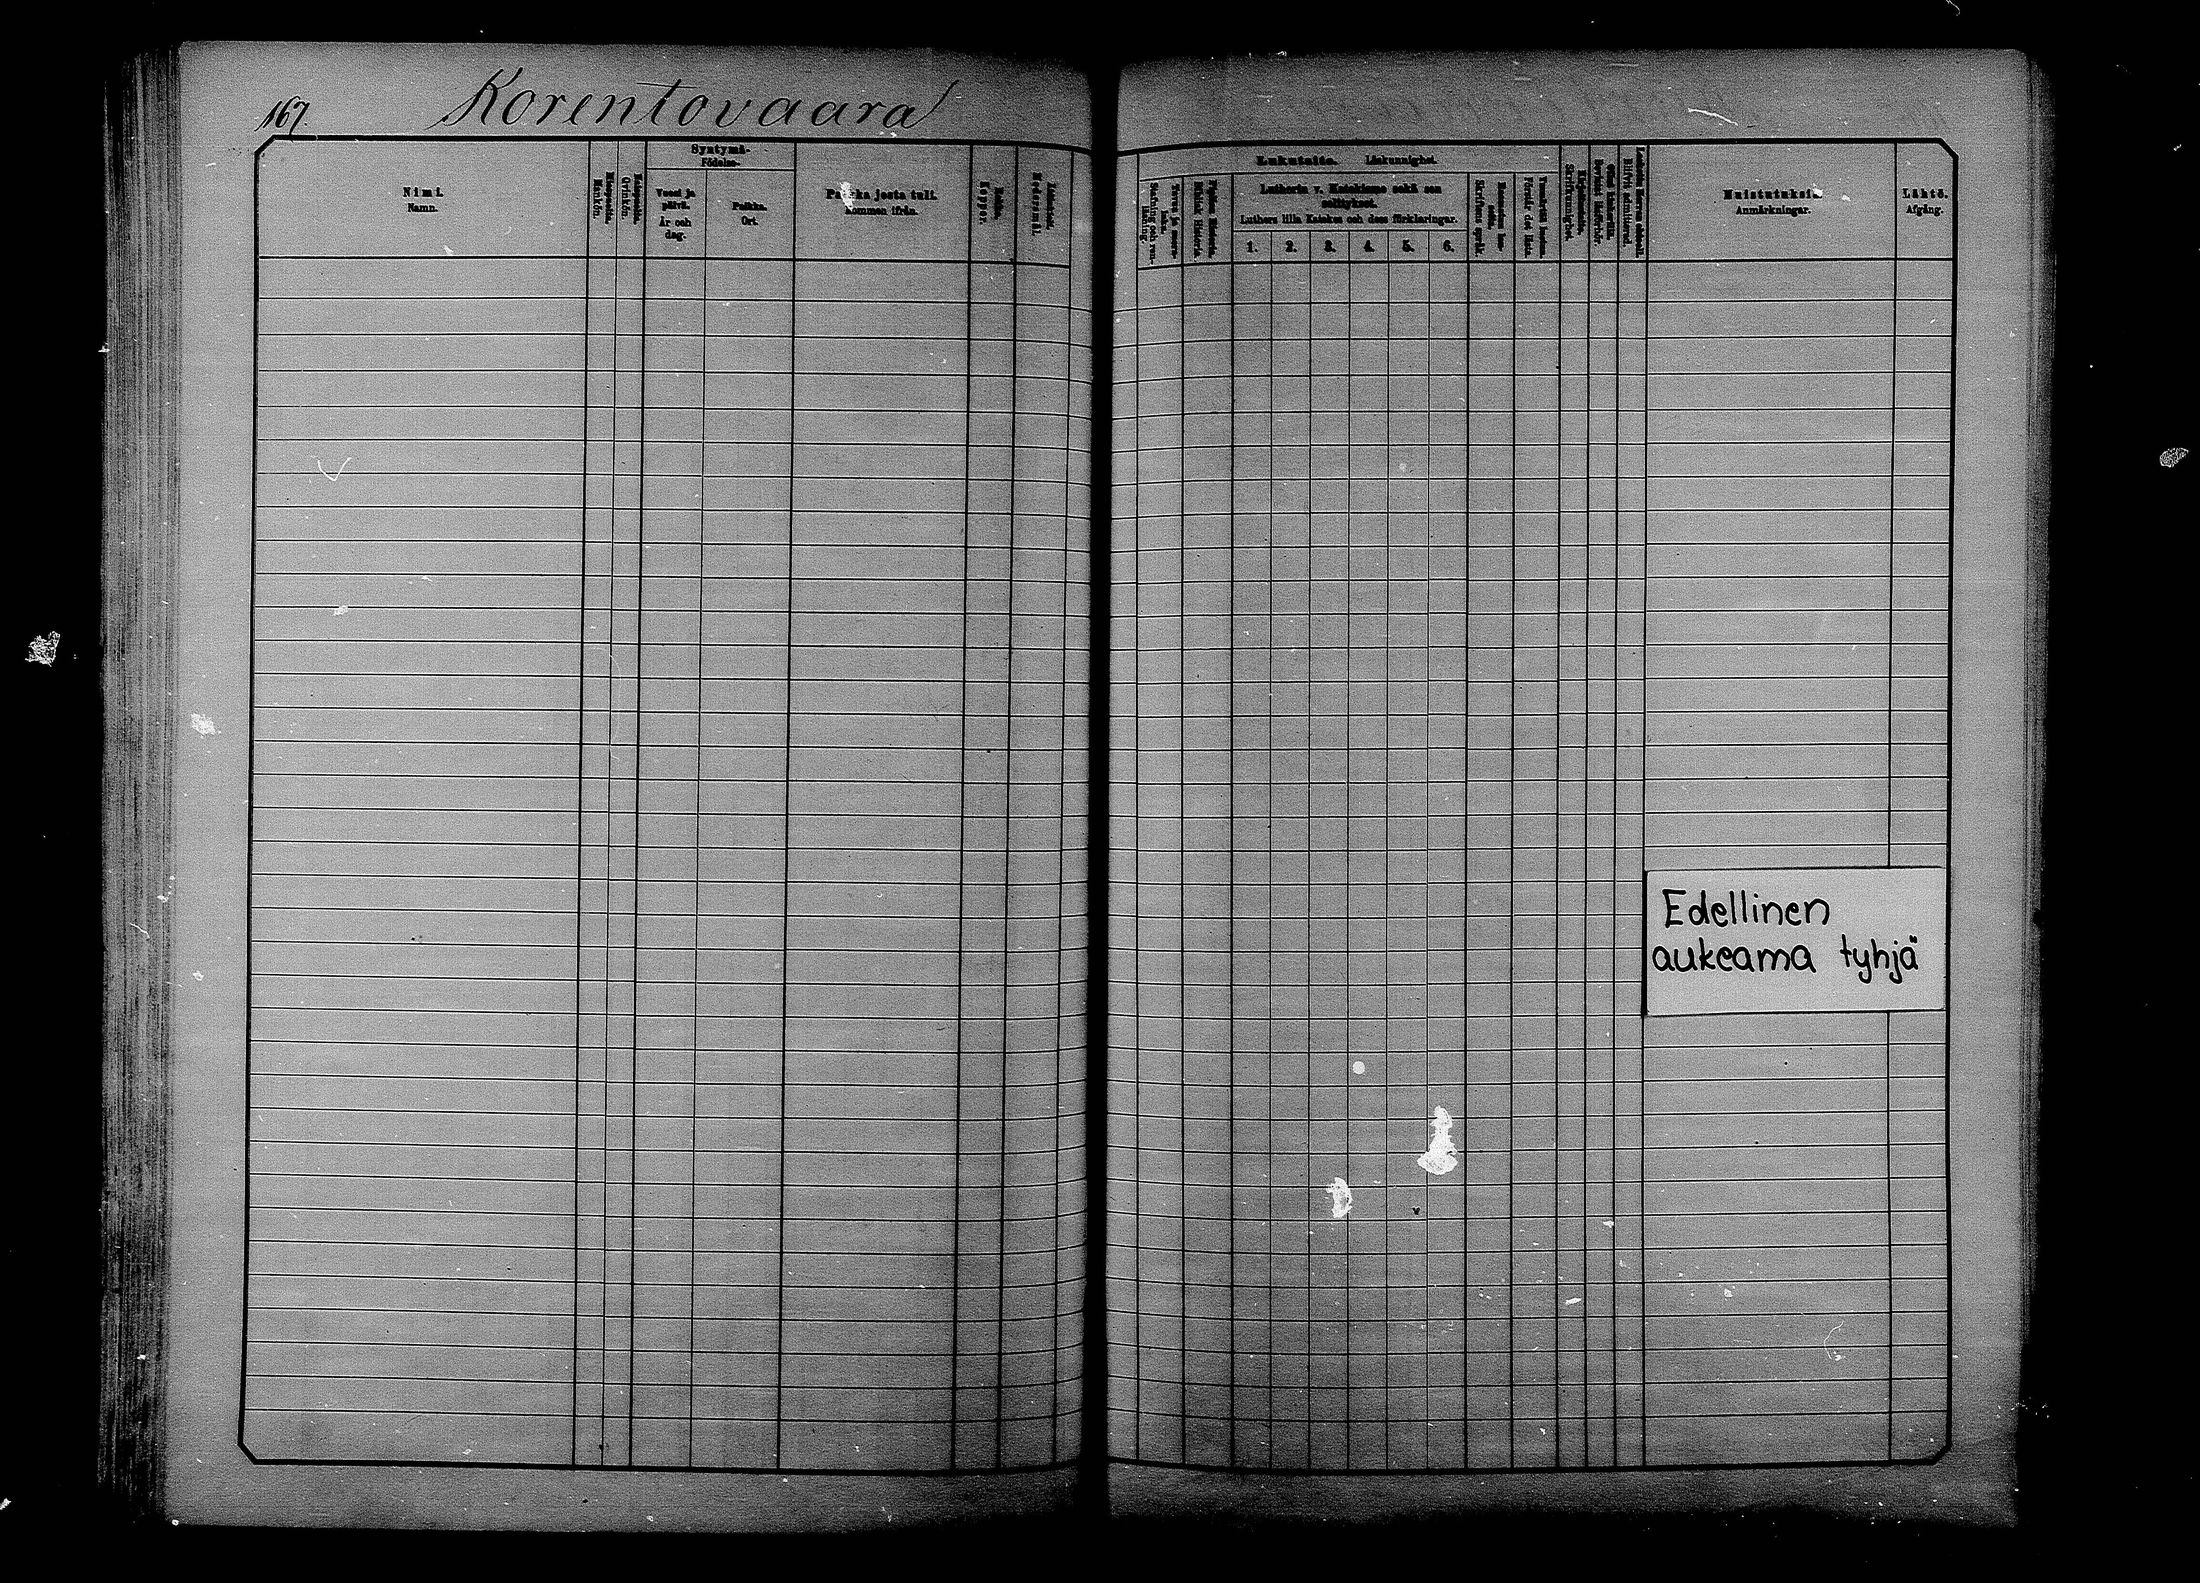 167.
Korentovaara
Nimi.
Namn.
Miespuolta.
Mankön.
Naispuolta.
Qvinkön.
Syntymä-
Födelse-
Vuosi ja
päivä.
År och
dag.
Paikka.
Ort.
Paikka josta tuli.
Kommen ifrån.
Rokko.
Koppor.
Lukutaito. Läskunnighet.
Biblisk Historia.
Lutherin v. Katekismo sekä sen
selitykset.
Luthers lilla Katekes och dess förklaringar.
1. 2. 3. 4. 5. 6.
Skriftens språk.
Förstår det lästa.
Skrifkunnighet.
Muistutuksia.
Anmärkningar.
Lähtö.
Afgång.
Edellinen
aukeama tyhjä